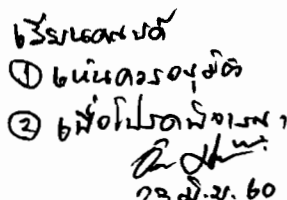 เรียนคณบดี
① เห็นควรอนุมัติ
② เพื่อโปรดพิจารณา
23 มิ.ย. 60